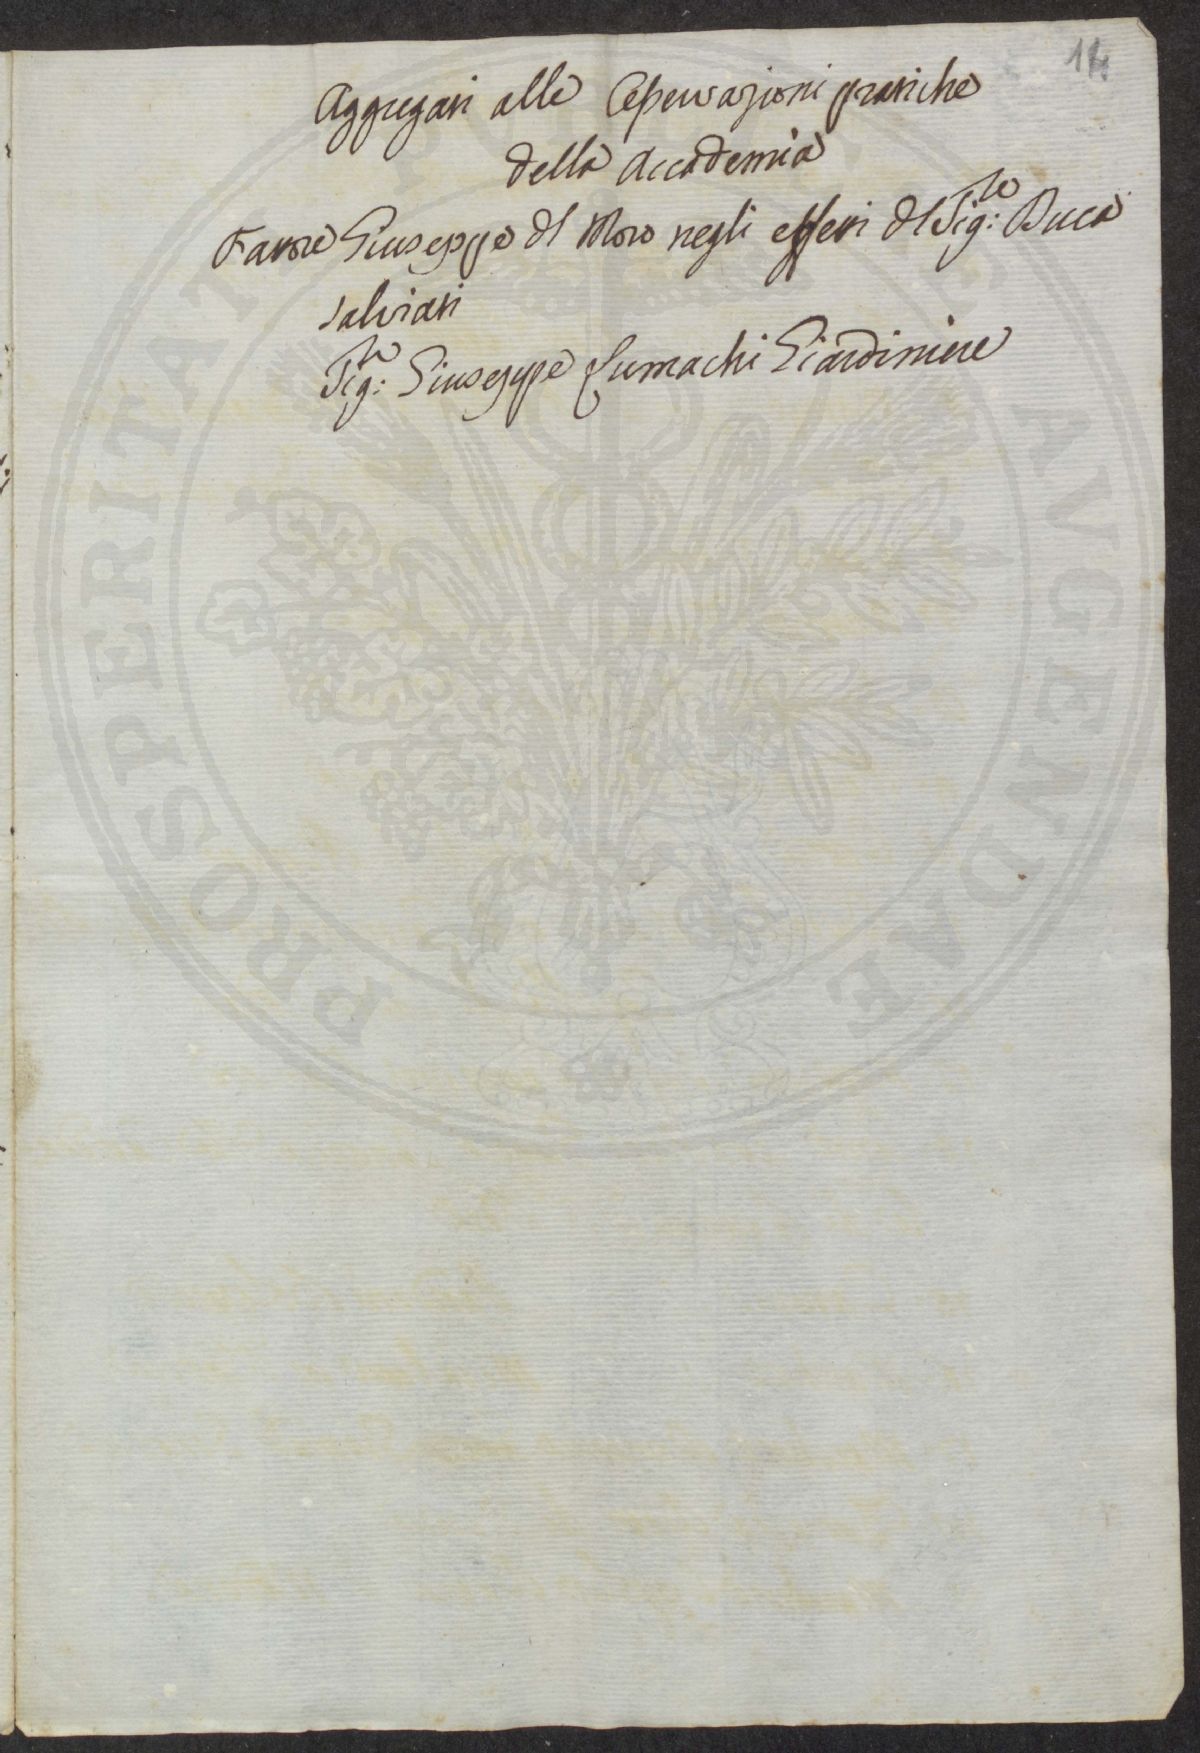 14
Aggregati alle Osservazioni pratiche
della Accademia
Fattore Giuseppe del Moro negli effetti del Sig.re Duca
Salviati
Sig.r Giuseppe Lumachi Giardiniere
PROSPERITATI PUBLICAE AVGENDAE